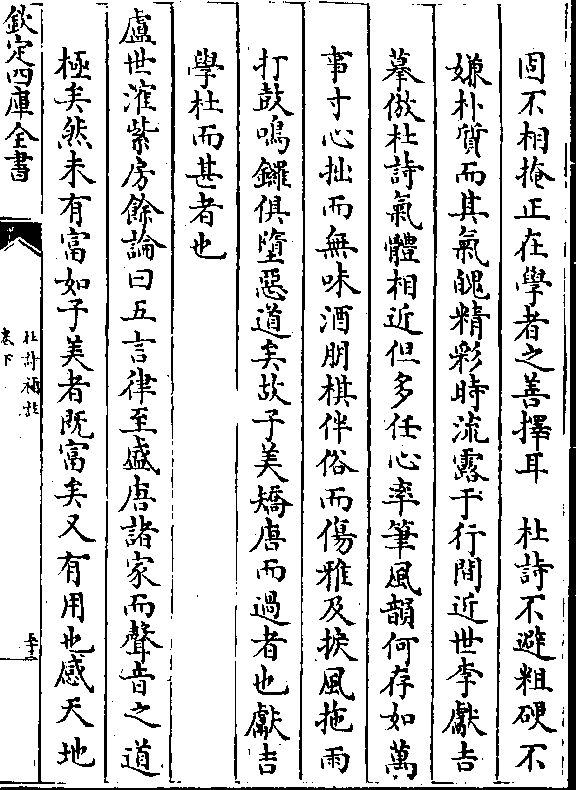 固不相掩正在學者之善擇耳　杜詩不避粗硬不
嫌朴質而其氣魄精彩時流露于行間近世李獻吉
摹倣杜詩氣體相近但多任心率筆風韻何存如萬
事寸心拙而無味酒朋棋伴俗而傷雅及捩風拖雨
打鼓鳴鑼俱墮惡道矣故子美矯唐而過者也獻吉
學杜而甚者也
盧世㴶紫房餘論曰五言律至盛唐諸家而聲音之道
極矣然未有富如子美者既富矣又有用也感天地
欽定四庫全書
杜詩
卷下